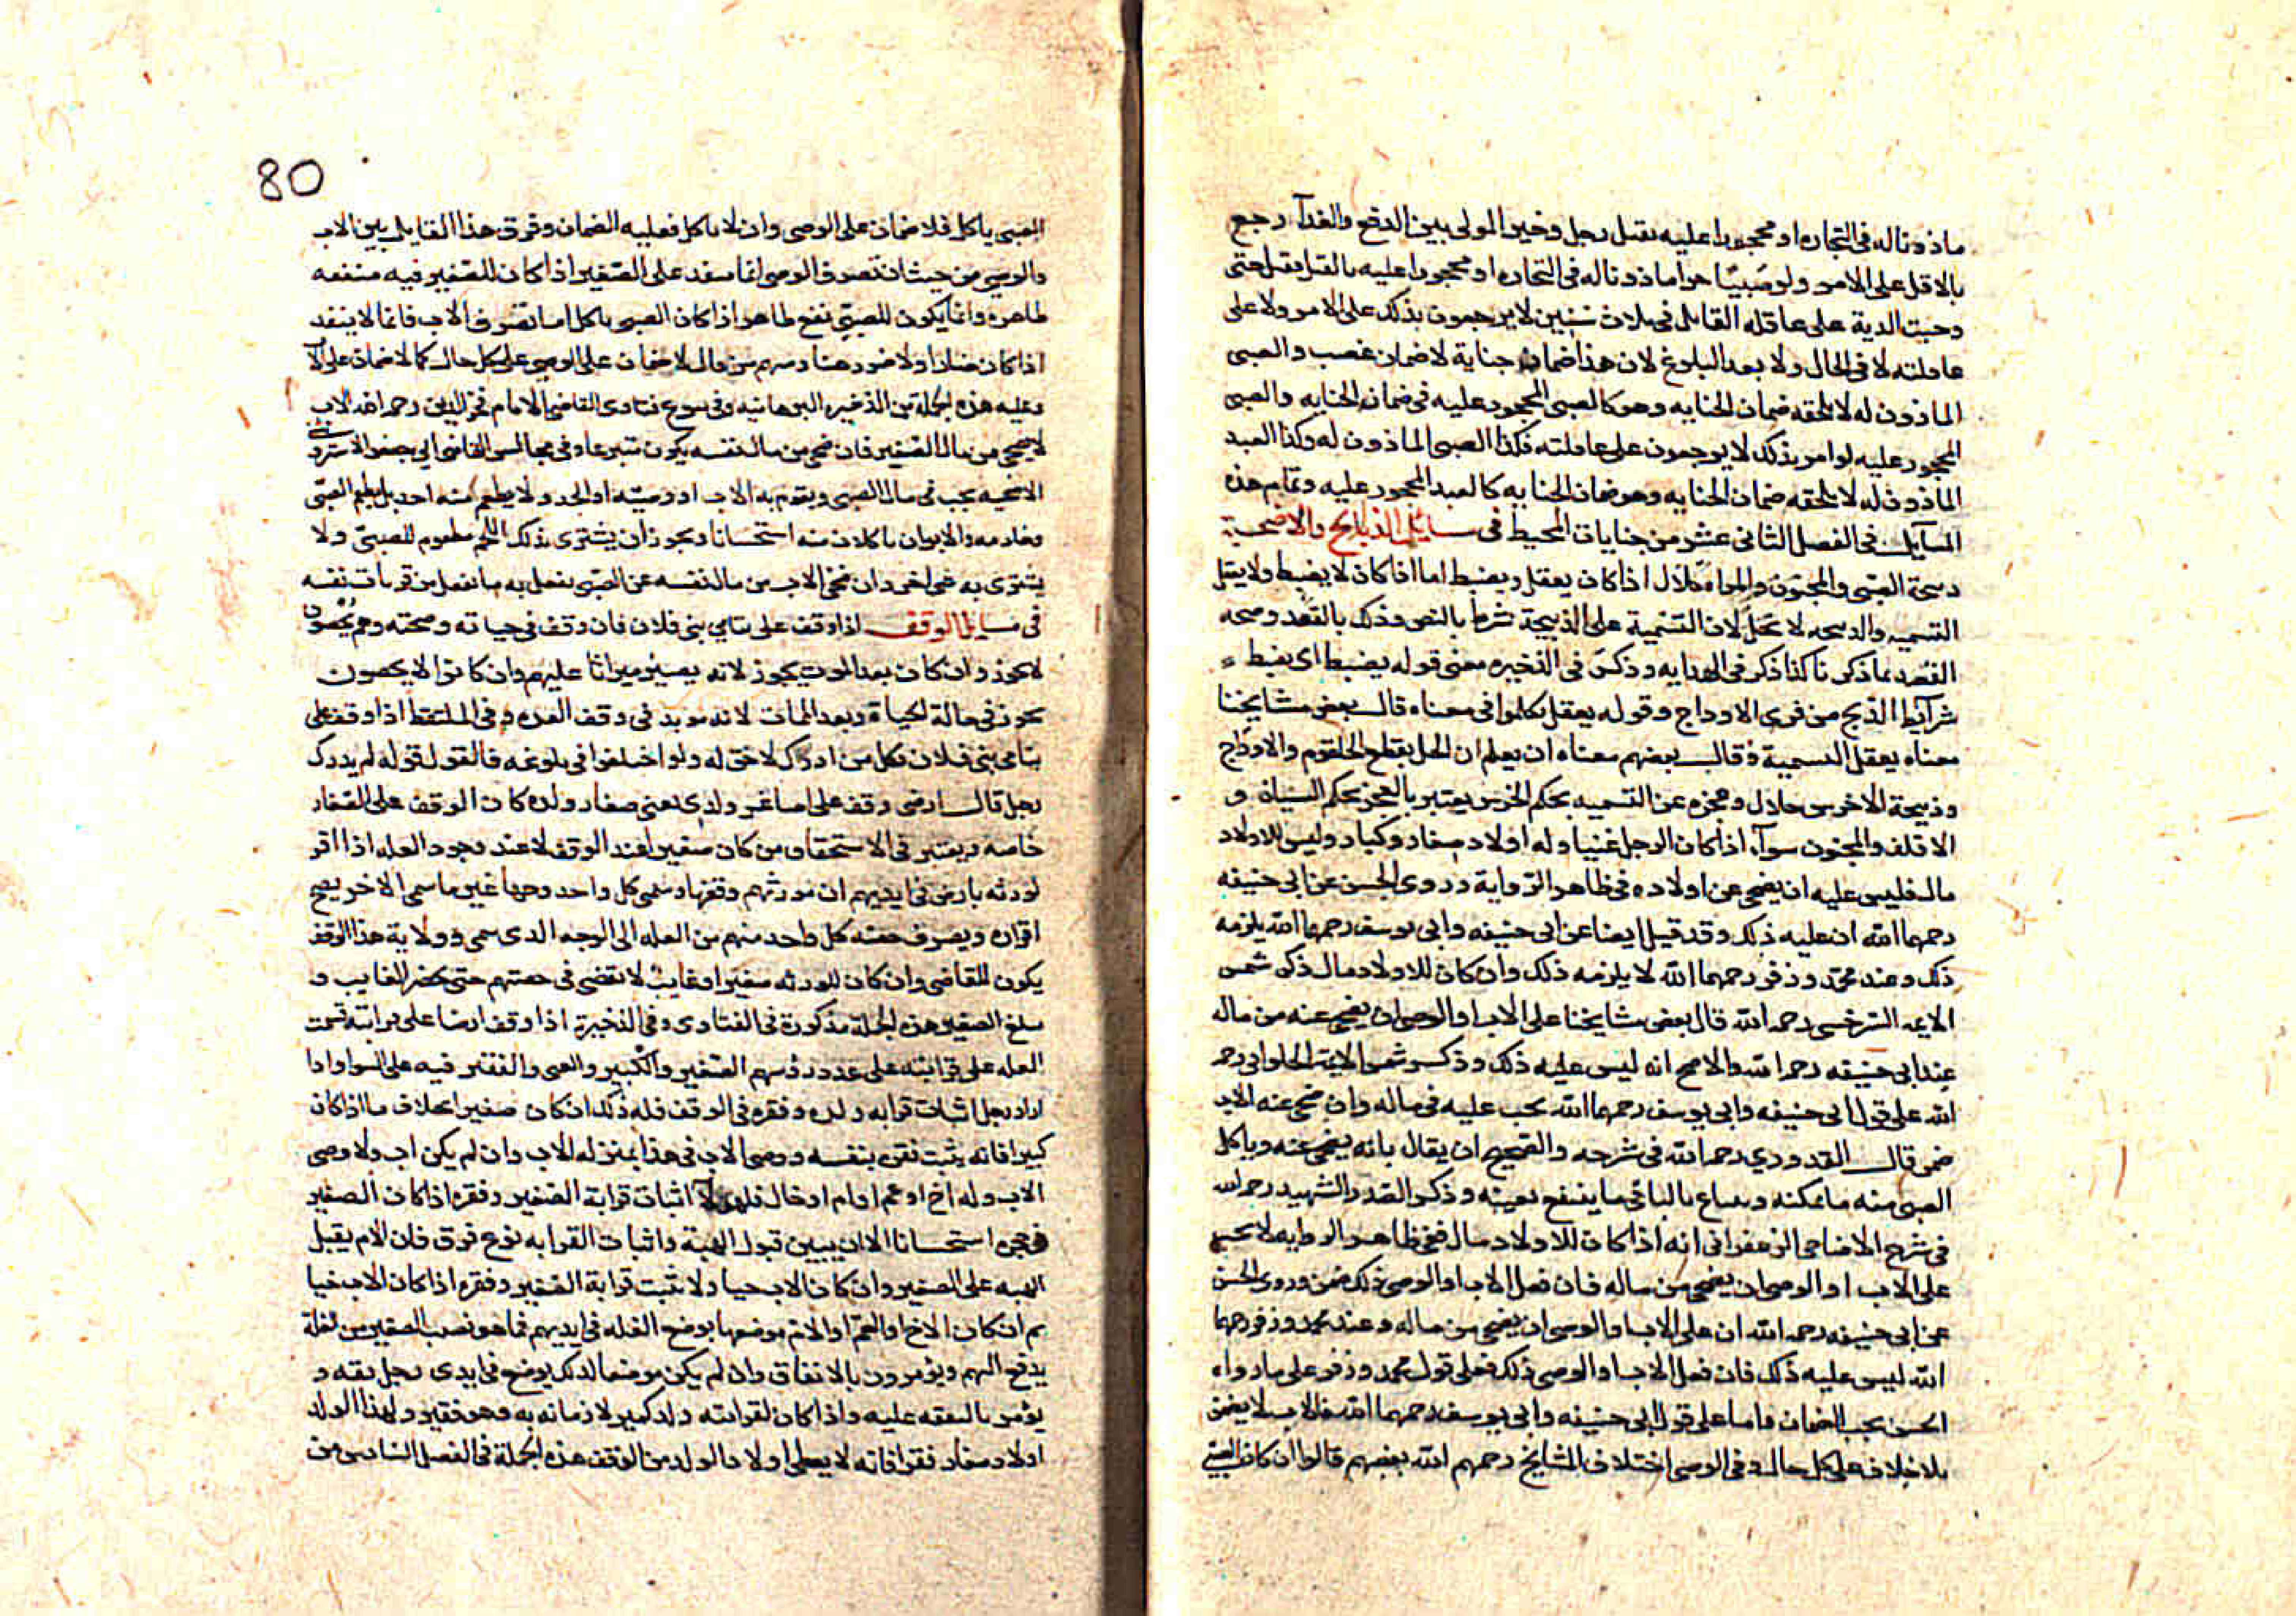 ماذونا له فى التجاره او محجورا عليه بقتل رجل وخير المولى بين الدفع والفدآ رجع
بالاقل على الامر ولو صبيا حرا ماذونا له فى التجاره او محجورا عليه بالقتل فقتل حتى
وجبت الدية على عاقلة القاتل فى ثلاث سنين لا يرجعون بذلك على الامر ولا على
عاقلته لا فى الحال ولا بعد البلوغ لان هذا ضمان جناية لا ضمان غصب والصبى
الماذون له لا يلحقه ضمان الجنايه وهو كالصبى المحجور عليه فى ضمان الجنايه والصبى
المحجور عليه لو امر بذلك لا يرجعون على عاقلته فكذا الصبى الماذون له وكذا العبد
الماذون له لا يلحقه ضمان الجنايه وهو ضمان الجنايه كالعبد المحجور عليه وتمام هذه
المسآيل فى الفصل الثانى عشر من جنايات المحيط فى مسايل الذبايح والاضحية
ذبيحة الصبى والمجنون والمراة حلال اذا كان يعقل ويضبط اما اذا كان لا يضبط ولا يعقل
التسميه والذبيحه لا تحل لان التسمية على الذبيحة شرط بالنص وذلك بالقصد وصحه
القصد بما ذكرنا كذا ذكر فى الهدايه وذكر فى الذخيره معنى قوله يضبط اى يضبط
شرآيط الذبح من فرى الاوداج وقوله يعقل تكلموا فى معناه قال بعض مشايخنا
معناه يعقل التسمية وقال بعضهم معناه ان يعلم ان الحل بقطع الحلقوم والاوداج
وذبيحة الاخرس حلال وعجزه عن التسميه بحكم الخرس يعتبر بالعجز بحكم النسيان و
الاقلف والمجنون سوآء اذا كان الرجل غنيا وله اولاد صغار وكبار وليس للاولاد
مال فليس عليه ان يضحى عن اولاده فى ظاهر الرواية وروى الحسن عن ابى حنيفه
رحمهما الله ان عليه ذلك وقد قيل ايضا عن ابى حنيفه وابى يوسف رحمهما الله يلزمه
ذلك وعند محمد وزفر رحمهما الله لا يلزمه ذلك وان كان للاولاد مال ذكر شمس
الايمه السرخسى رحمه الله قال بعض مشايخنا على الاب او الوصى ان يضحى عنه من ماله
عند ابى حنيفه رحمه الله والاصح انه ليس عليه ذلك وذكر شمس الايمة الحلوانى رحمه
الله على قول ابى حنيفه وابى يوسف رحمهما الله يجب عليه فى ماله وان ضحى عنه الاب
ضمن قال القدورى رحمه الله فى شرحه والصحيح ان يقال بانه يضحى عنه وياكل
الصبى منه ما يمكنه ويبتاع بالباقى ما ينتفع بعينه وذكر الصدر الشهيد رحمه الله
فى شرح الاضاحى الزعفرانى انه اذا كان للاولاد مال ففى ظاهر الروايه لا يجب
على الاب او الوصى ان يضحى من ماله فان فعل الاب او الوصى ذلك ضمن وروى الحسن
عن ابى حنيفه رحمه الله ان على الاب او الوصى ان يضحى من ماله وعند محمد وزفر رحمهما
الله ليس عليه ذلك فان فعل الاب او الوصى ذلك فعلى قول محمد وزفر على ما رواه
الحسن يجب الضمان واما على قول ابى حنيفه وابى يوسف رحمهما الله فالاب لا يضمن
بلا خلاف على كل حال وفى الوصى اختلاف المشايخ رحمهم الله بعضهم قالوا ان كان الصبى
80
الصبى ياكل فلا ضمان على الوصى وان لا ياكل فعليه الضمان وفرق هذا القايل بين الاب
والوصى من حيث ان تصرف الوصى انما ينفذ على الصغير اذا كان للصغير فيه منفعه
ظاهره وانما يكون للصبى نفع ظاهر اذا كان الصبى ياكل اما تصرف الاب فانما لا ينفذ
اذا كان ضارا ولا ضرر هنا ومنهم من قال لا ضمان على الوصى على كل حال كما لا ضمان على الآ
وعليه هذه الجملة من الذخيره البرهانيه وفى بيوع فتاوى القاضى الامام فخر الدين رحمه الله الاب
لا يضحى من مال الصغير فان ضحى من مال نفسه يكون متبرعا وفى مجالس القاضى ابى جعفر الاسروشنى
الاضحيه يجب فى مال الصبى ويقوم به الاب او وصيته او الجد ولا يطعم منه احد بل يطعم الصبى
وخادمه والابوان ياكلان منه استحسانا ويجوز ان يشترى بذلك اللحم مطعوم للصبى ولا
يشترى به شى اخر وان ضحى الاب من مال نفسه عن الصبى يفعل به ما يفعل من قربات نفسه
فى مسايل الوقف اذا وقف على يتامى بنى فلان فان وقف فى حياته وصحته وهم يحصون
لا يجوز وان كان بعد الموت يجوز لانه يصير ميراثا عليهم وان كانوا لا يحصون
يجوز فى حالة الحياة وبعد الممات لانه موبد فى وقف العده وفى الملتقط اذا وقف على
يتامى بنى فلان فكل من ادرك لا حق له ولو اختلفوا فى بلوغه فالقول قوله لم يدرك
رجل قال ارضى وقف على اصاغر ولدى يعنى صغار ولده كان الوقف على الصغار
خاصه ويعتبر فى الاستحقاق من كان صغيرا عند الوقف لا عند وجود الغله اذا اقر
لورثه بارض فى ايديهم ان مورثهم وقفها وسمى كل واحد وجها غير ما سمى الاخر يصح
اقراره ويصرف حصه كل واحد منهم من الغله الى الوجه الذى سمى وولاية هذا الوقف
يكون للقاضى وان كان للورثه صغيرا او غايب لا يقضى فى حصتهم حتى يحضر الغايب و
يبلغ الصغير هذه الجملة مذكورة فى الفتاوى وفى الذخيرة اذا وقف ارضا على قرابته قسمت
الغله على قرابته على عدد رؤسهم الصغير والكبير والغنى والفقير فيه على السوا واذا
اراد رجل اثبات قرابه ولده وفقره فى الوقف فله ذلك ان كان صغيرا بخلاف ما اذا كان
كبيرا فانه يثبت فقره بنفسه ووصى الاب فى هذا بمنزله الاب وان لم يكن اب ولا وصى
الاب وله اخ او عم او ام او خال فلهولآ اثبات قرابة الصغير وفقره اذا كان الصغير
فى حجره استحسانا الا ان يبين قبول الهبة واثبات القرابه نوع فرق فان الام يقبل
الهبه على الصغير وان كان الاب حيا ولا يثبت قرابة الصغير وفقره اذا كان الاب حيا
ثم ان كان الاخ او العم او الام موضعها يوضع الغله فى ايديهم فما هو نصيب الصغير من الغلة
يدفع اليهم ويؤمرون بالانفاق وان لم يكن موضعا لذلك يوضع فى ايدى رجل ثقه و
يؤمر بالنفقه عليه واذا كان لقرابته ولد كبير لا زمانه به وهو فقير ولهذا الولد
اولاد صغار فقرا فانه لا يعطى اولاد الولد من الوقف هذه الجملة فى الفصل السادس من